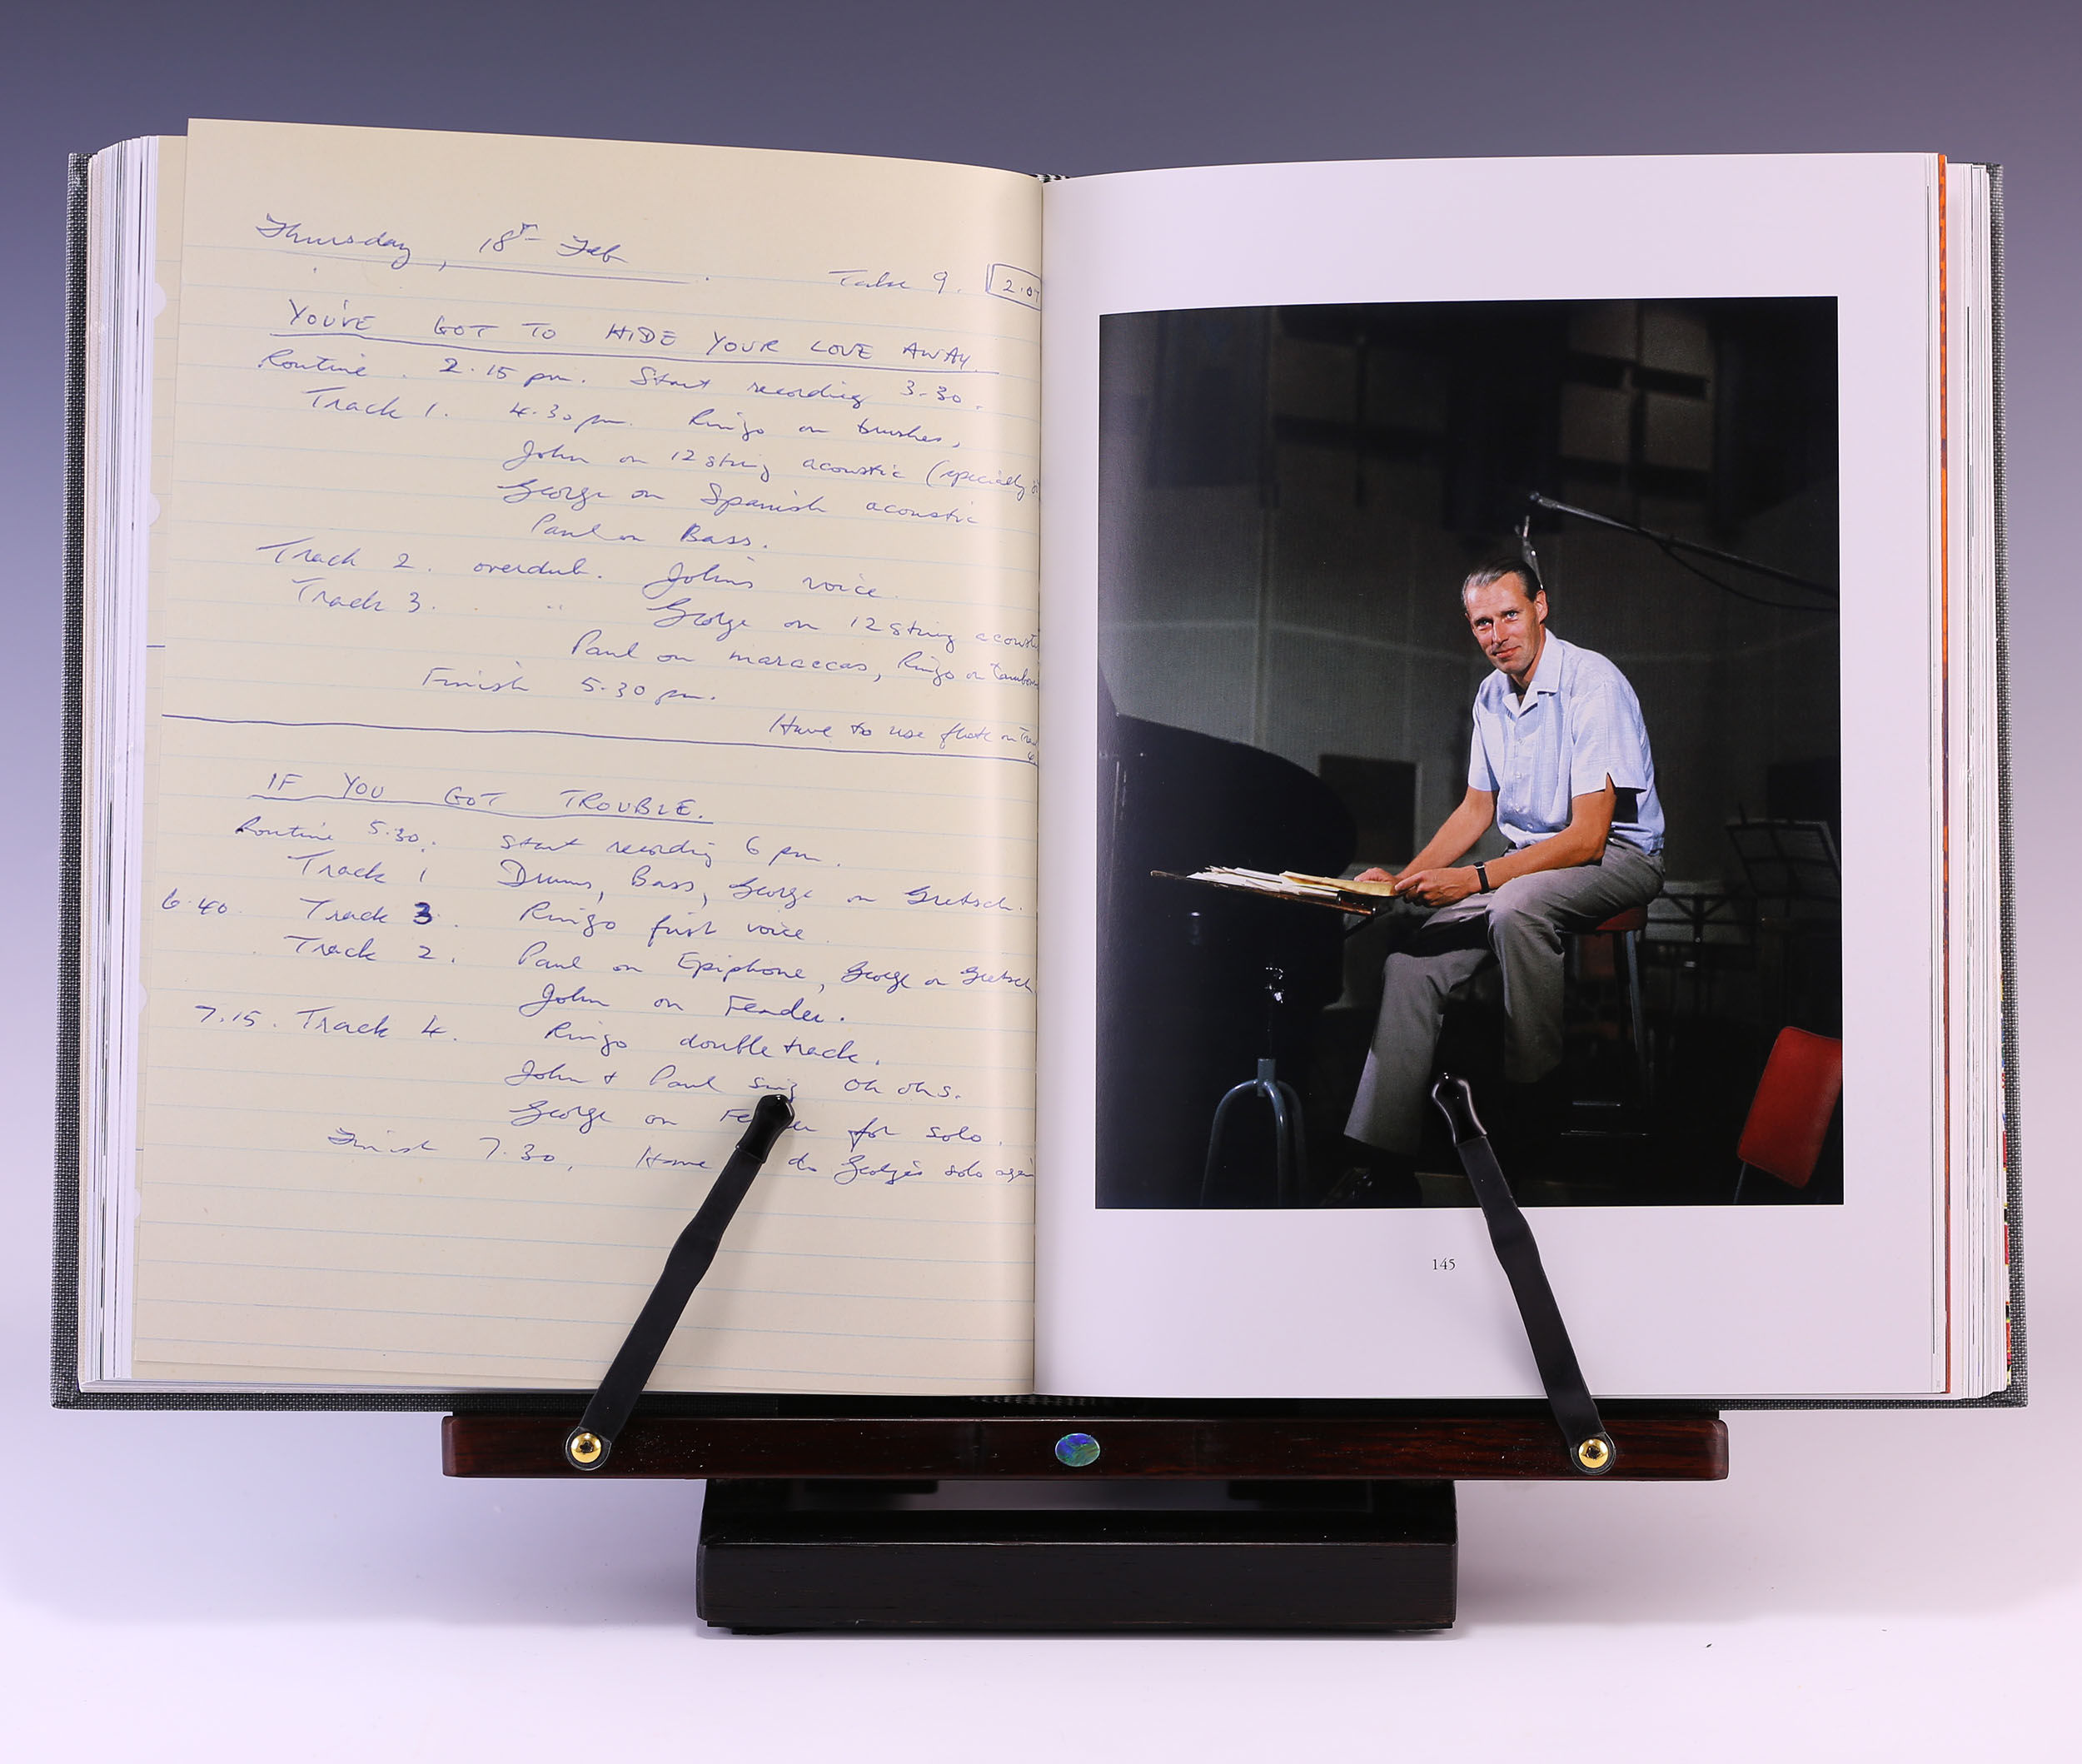 Thursday, 18th Feb
Take 9. 2.07
YOU'VE GOT TO HIDE YOUR LOVE AWAY.
Routine. 2.15 pm. Start recording 3.30.
Track 1. 4.30 pm. Ringo on brushes,
John on 12 string acoustic (specially
George on Spanish acoustic
Paul on Bass.
Track 2. overdub. John's voice.
Track 3. " George on 12 string acoust
Paul on maraccas, Ringo on Tambor
Finish 5.30 pm.
Have to use flute on
IF YOU GOT TROUBLE.
Routine 5.30. Start recording 6 pm.
Track 1 Drums, Bass, George on Gretsch.
6.40 Track 3. Ringo first voice.
Track 2. Paul on Epiphone, George on Gretsch
John on Fender.
7.15. Track 4. Ringo double track.
John + Paul sing Oh ohs.
George on for solo.
Finish 7.30. do George's solo again
145